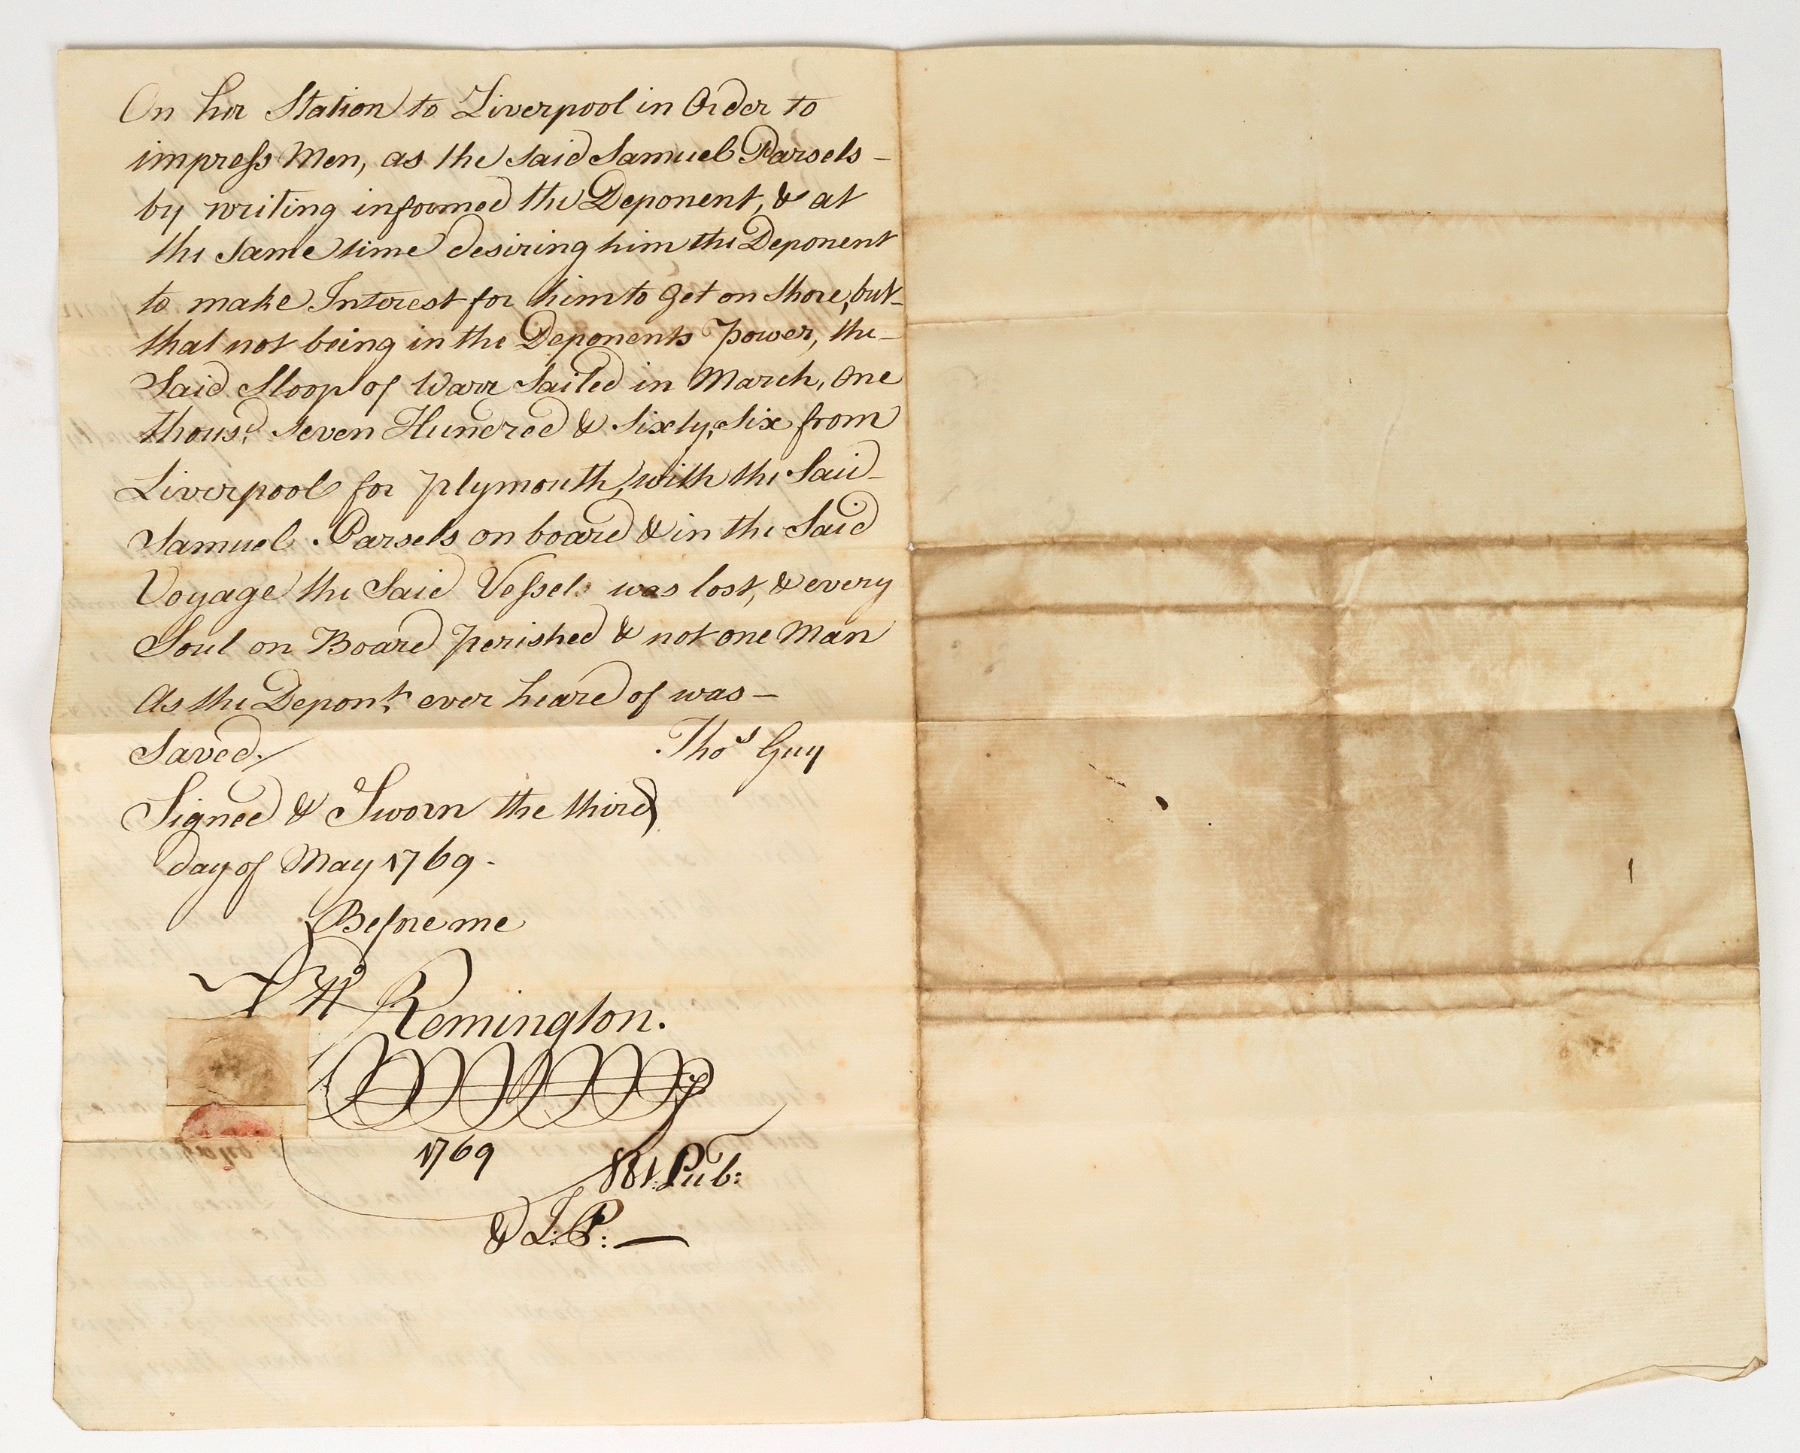 On her Station to Liverpool in Order to
impress Men, as the said Samuel Parsels –
by writing informed the Deponent, & at
the same time desiring him the Deponent
to make Interest for him to get on Shore, but –
that not being in the Deponents Power, the –
Said Sloop of Warr Sailed in March, One
thousd. Seven Hundred & Sixty, Six from
Liverpool for Plymouth, with the Said –
Samuel Parsels on board & in the Said
Voyage the Said Vessel: was lost, & every
Soul on Board perished & not one Man
As the Depont. ever heard of was –
Saved.
Thos Guy
Signed & Sworn the third
day of May 1769.
Before me
Remington.
1769
Not. Pub:
& J:P: —